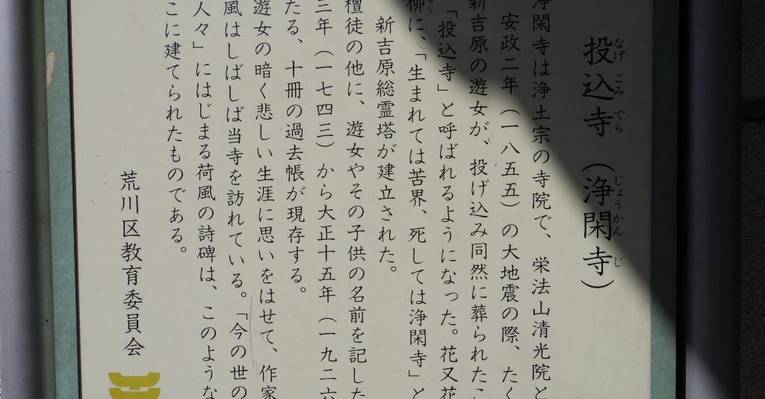 投込寺（浄閑寺）
なげこみでら
じょうかんじ
浄閑寺は浄土宗の寺院で、栄法山清光院と
安政二年（一八五五）の大地震の際、たく
新吉原の遊女が、投げ込み同然に葬られたこ
「投込寺」と呼ばれるようになった。花又花
柳に、「生まれては苦界、死しては浄閑寺」と
新吉原総霊塔が建立された。
檀徒の他に、遊女やその子供の名前を記した
三年（一七四三）から大正十五年（一九二六
たる、十冊の過去帳が現存する。
遊女の暗く悲しい生涯に思いをはせて、作家
風はしばしば当寺を訪れている。「今の世の
人々」にはじまる荷風の詩碑は、このような
こに建てられたものである。
荒川区教育委員会